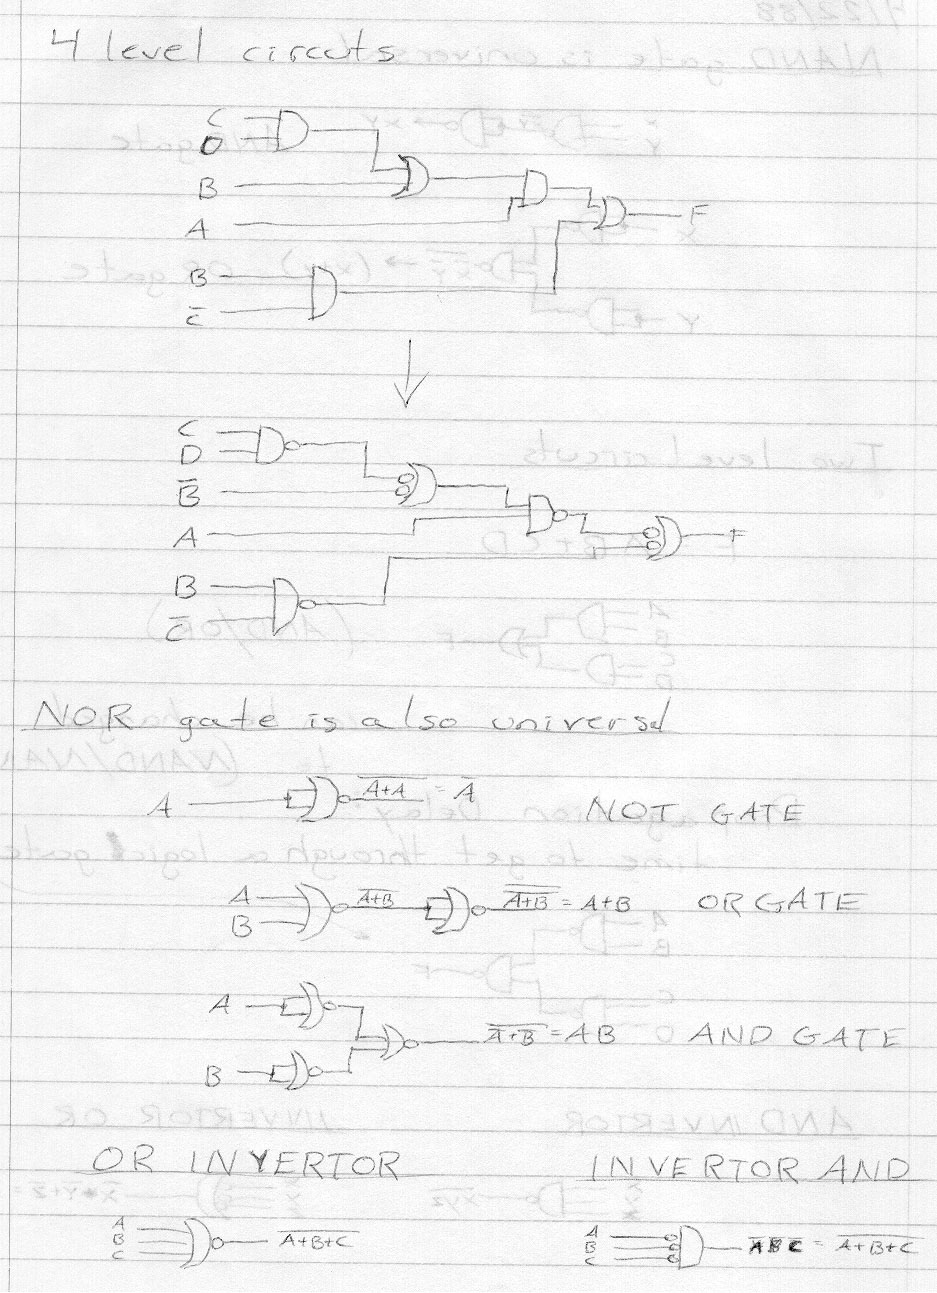 4 level circuts
C
D
B
A
F
B
C̅
C
D
B̅
A
F
B
C̅
NOR gate is also universal
A A̅+̅A̅ = A̅ NOT GATE
A
B A̅+̅B̅ A̿+̿B̿ = A+B OR GATE
A
A̅+̅B̅ = AB AND GATE
B
OR INVERTOR INVERTOR AND
A
B
C A̅+̅B̅+̅C̅
A
B
C A̅ B̅ C̅ = A̅+̅B̅+̅C̅